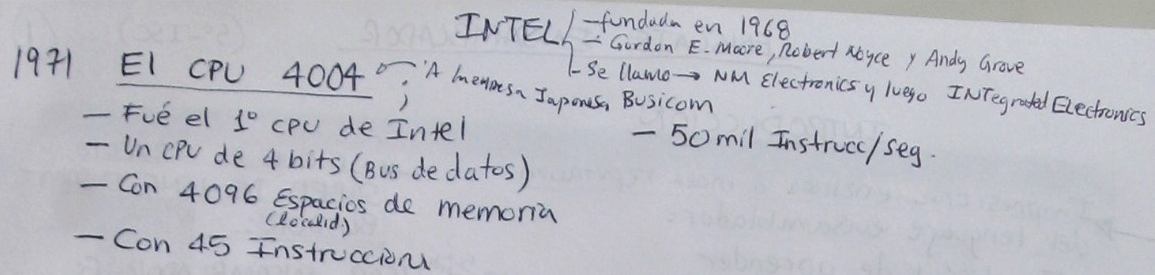 INTEL - fundada en 1968
- Gordon E. Moore, Robert Noyce y Andy Grove
- Se llamo → NM Electronics y luego INTegrated Electronics
1971 El CPU 4004 A Japonesa Busicom
- Fué el 1º CPU de Intel
- 50 mil Instrucc/seg.
- Un CPU de 4 bits (Bus de datos)
- Con 4096 Espacios de memoria
(localid)
- Con 45 Instruccion